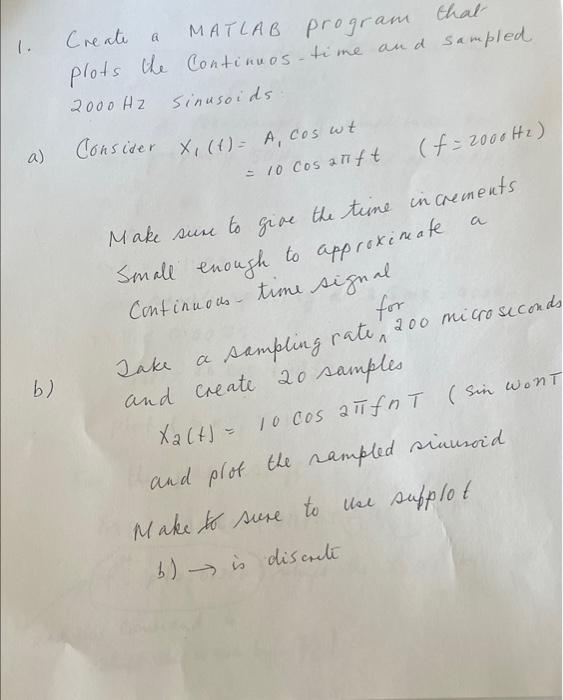 1. Create a MATLAB program that
plots the Continuos-time and sampled
2000 Hz sinusoids.
a) Consider x₁(t) = A, cos wt
= 10 cos 2πft (f = 2000 Hz)
Make sure to give the time increments
small enough to approximate a
Continuous-time signal
for
b) Take a sampling rate ∧ 200 microseconds
and create 20 samples
X₂(t) = 10 cos 2πfnT (sin wonT
and plot the sampled sinusoid
Make to sure to use subplot
b) → is discrete